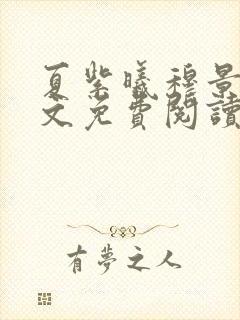 夏紫曦穆景
文免費閱讀
有夢之人